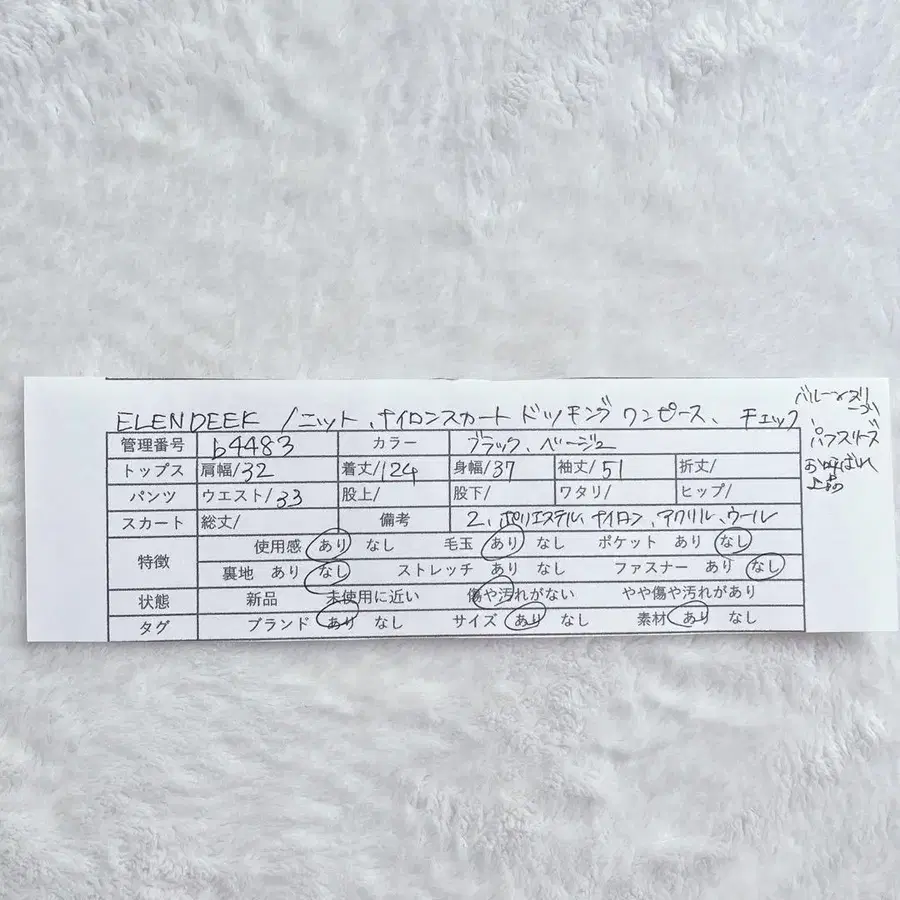 ELENDEEK / ニット、ナイロンスカート ドッキング ワンピース、チェック
バルーンスリーブ、
パフスリーズ
お呼ばれ
上品
管理番号 b4483 カラー ブラック、ベージュ
トップス 肩幅/32 着丈/124 身幅/37 袖丈/51 折丈/
パンツ ウエスト/33 股上/ 股下/ ワタリ/ ヒップ/
スカート 総丈/ 備考 2、ポリエステル、ナイロン、アクリル、ウール
特徴 使用感 あり なし 毛玉 あり なし ポケット あり なし
裏地 あり なし ストレッチ あり なし ファスナー あり なし
状態 新品 未使用に近い 傷や汚れがない やや傷や汚れがあり
タグ ブランド あり なし サイズ あり なし 素材 あり なし